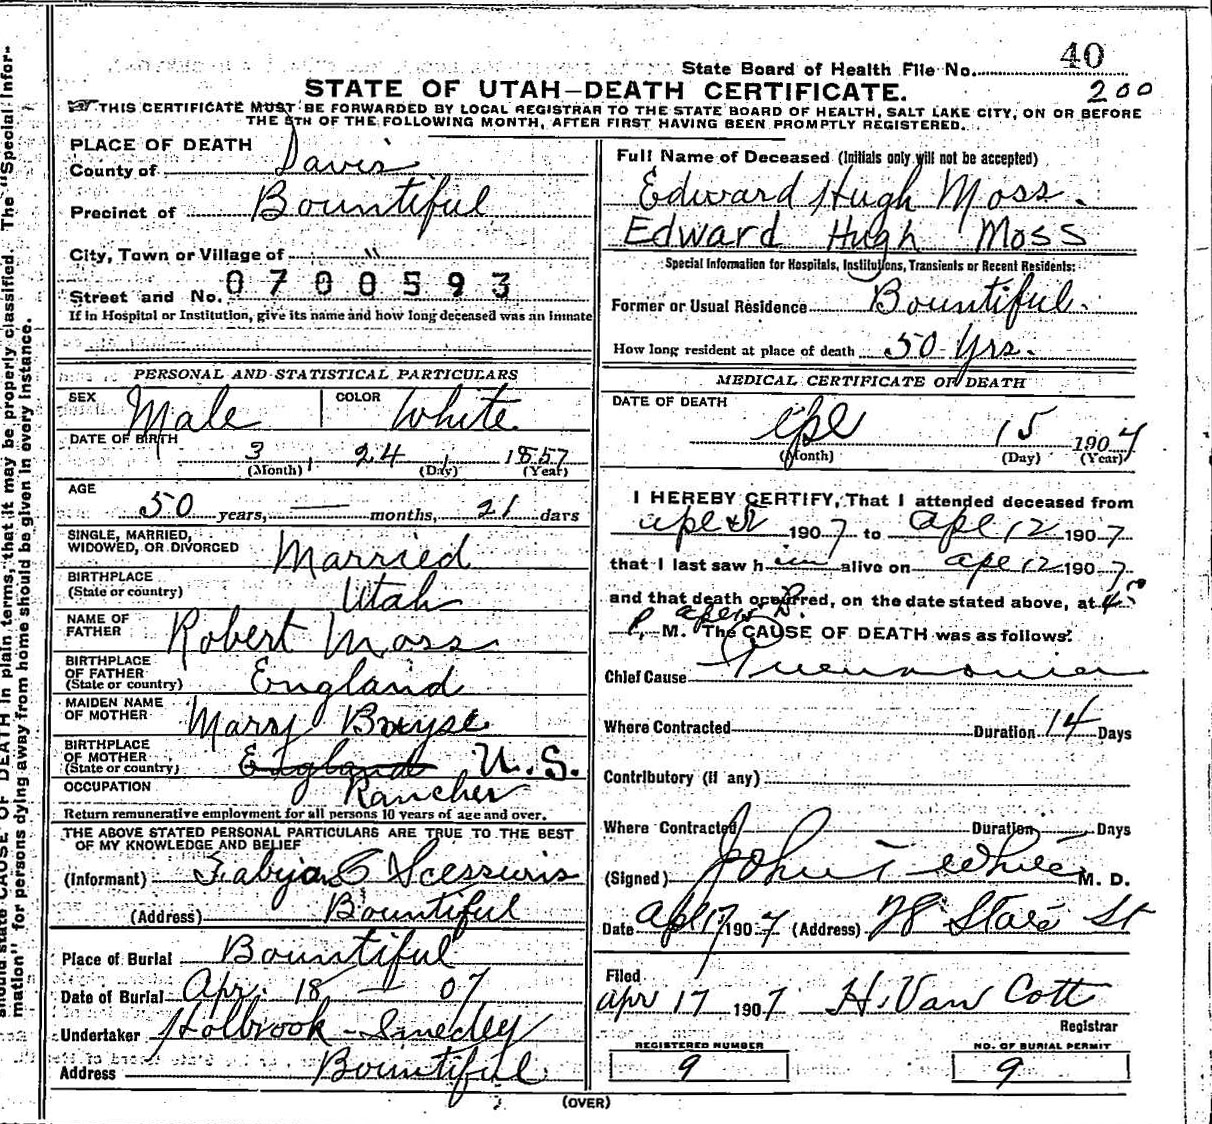 40
State Board of Health File No.
STATE OF UTAH—DEATH CERTIFICATE.
200
THIS CERTIFICATE MUST BE FORWARDED BY LOCAL REGISTRAR TO THE STATE BOARD OF HEALTH, SALT LAKE CITY, ON OR BEFORE
THE 5TH OF THE FOLLOWING MONTH, AFTER FIRST HAVING BEEN PROMPTLY REGISTERED.
PLACE OF DEATH
County of Davis
Precinct of Bountiful
City, Town or Village of "
Street and No. 0700593
If in Hospital or Institution, give its name and how long deceased was an inmate
PERSONAL AND STATISTICAL PARTICULARS
SEX Male COLOR White
DATE OF BIRTH
3 24 1857
(Month) (Day) (Year)
AGE
50 years, — months, 21 days
SINGLE, MARRIED,
WIDOWED, OR DIVORCED Married
BIRTHPLACE
(State or country) Utah
NAME OF
FATHER Robert Moss
BIRTHPLACE
OF FATHER
(State or country) England
MAIDEN NAME
OF MOTHER Mary
BIRTHPLACE
OF MOTHER
(State or country) England U.S.
OCCUPATION Rancher
Return remunerative employment for all persons 10 years of age and over.
THE ABOVE STATED PERSONAL PARTICULARS ARE TRUE TO THE BEST
OF MY KNOWLEDGE AND BELIEF
(Informant)
(Address) Bountiful
Place of Burial Bountiful
Date of Burial Apr. 18 — 07
Undertaker Holbrook - Smedley
Address Bountiful
Full Name of Deceased (Initials only will not be accepted)
Edward Hugh Moss.
Edward Hugh Moss
Special Information for Hospitals, Institutions, Transients or Recent Residents:
Former or Usual Residence Bountiful.
How long resident at place of death 50 Yrs.
MEDICAL CERTIFICATE OF DEATH
DATE OF DEATH
Apl 15 1907
(Month) (Day) (Year)
I HEREBY CERTIFY, That I attended deceased from
apl 1907 to apl 12 1907
that I last saw him alive on apl 12 1907
and that death occurred, on the date stated above, at 45
P. M. The CAUSE OF DEATH was as follows:
Chief Cause Pneumonia
Where Contracted Duration 14 Days
Contributory (if any)
Where Contracted Duration Days
(Signed) John T White M. D.
Date Apl 17 1907 (Address) 78 State St
Filed
Apr 17 1907 H. Van Cott
Registrar
REGISTERED NUMBER
9
NO. OF BURIAL PERMIT
9
(OVER)
should state CAUSE OF DEATH in plain terms, that it may be properly classified. The "Special Infor-
mation" for persons dying away from home should be given in every instance.